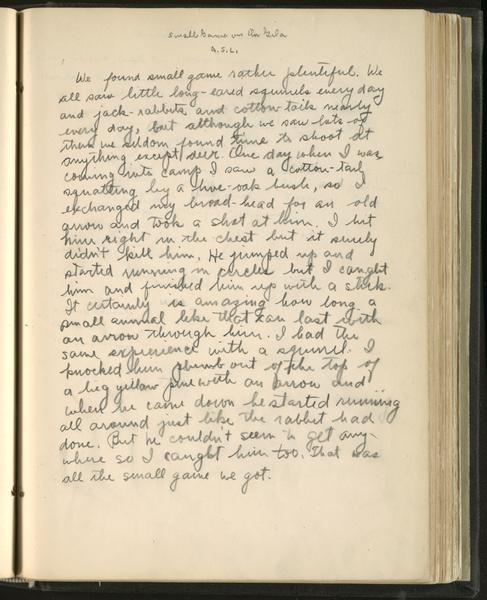 Small Game on the Gila
A.S.L.
We found small game rather plentiful. We
all saw little long-eared squirrels every day
and jack-rabbits, and cotton-tails nearly
every day, but although we saw lots of
them we seldom found time to shoot at
anything except deer. One day when I was
coming into camp I saw a cotton-tail
squatting by a live-oak bush, so I
exchanged my broad-head for an old
arrow and took a shot at him. I hit
him right in the chest but it surely
didn't kill him. He jumped up and
started running in circles but I caught
him and finished him up with a stick.
It certainly is amazing how long a
small animal like that can last with
an arrow through him. I had the
same experience with a squirrel. I
knocked him plumb out of the top of
a big yellow pine with an arrow and
when he came down he started running
all around just like the rabbit had
done. But he couldn't seem to get any-
where so I caught him too. That was
all the small game we got.